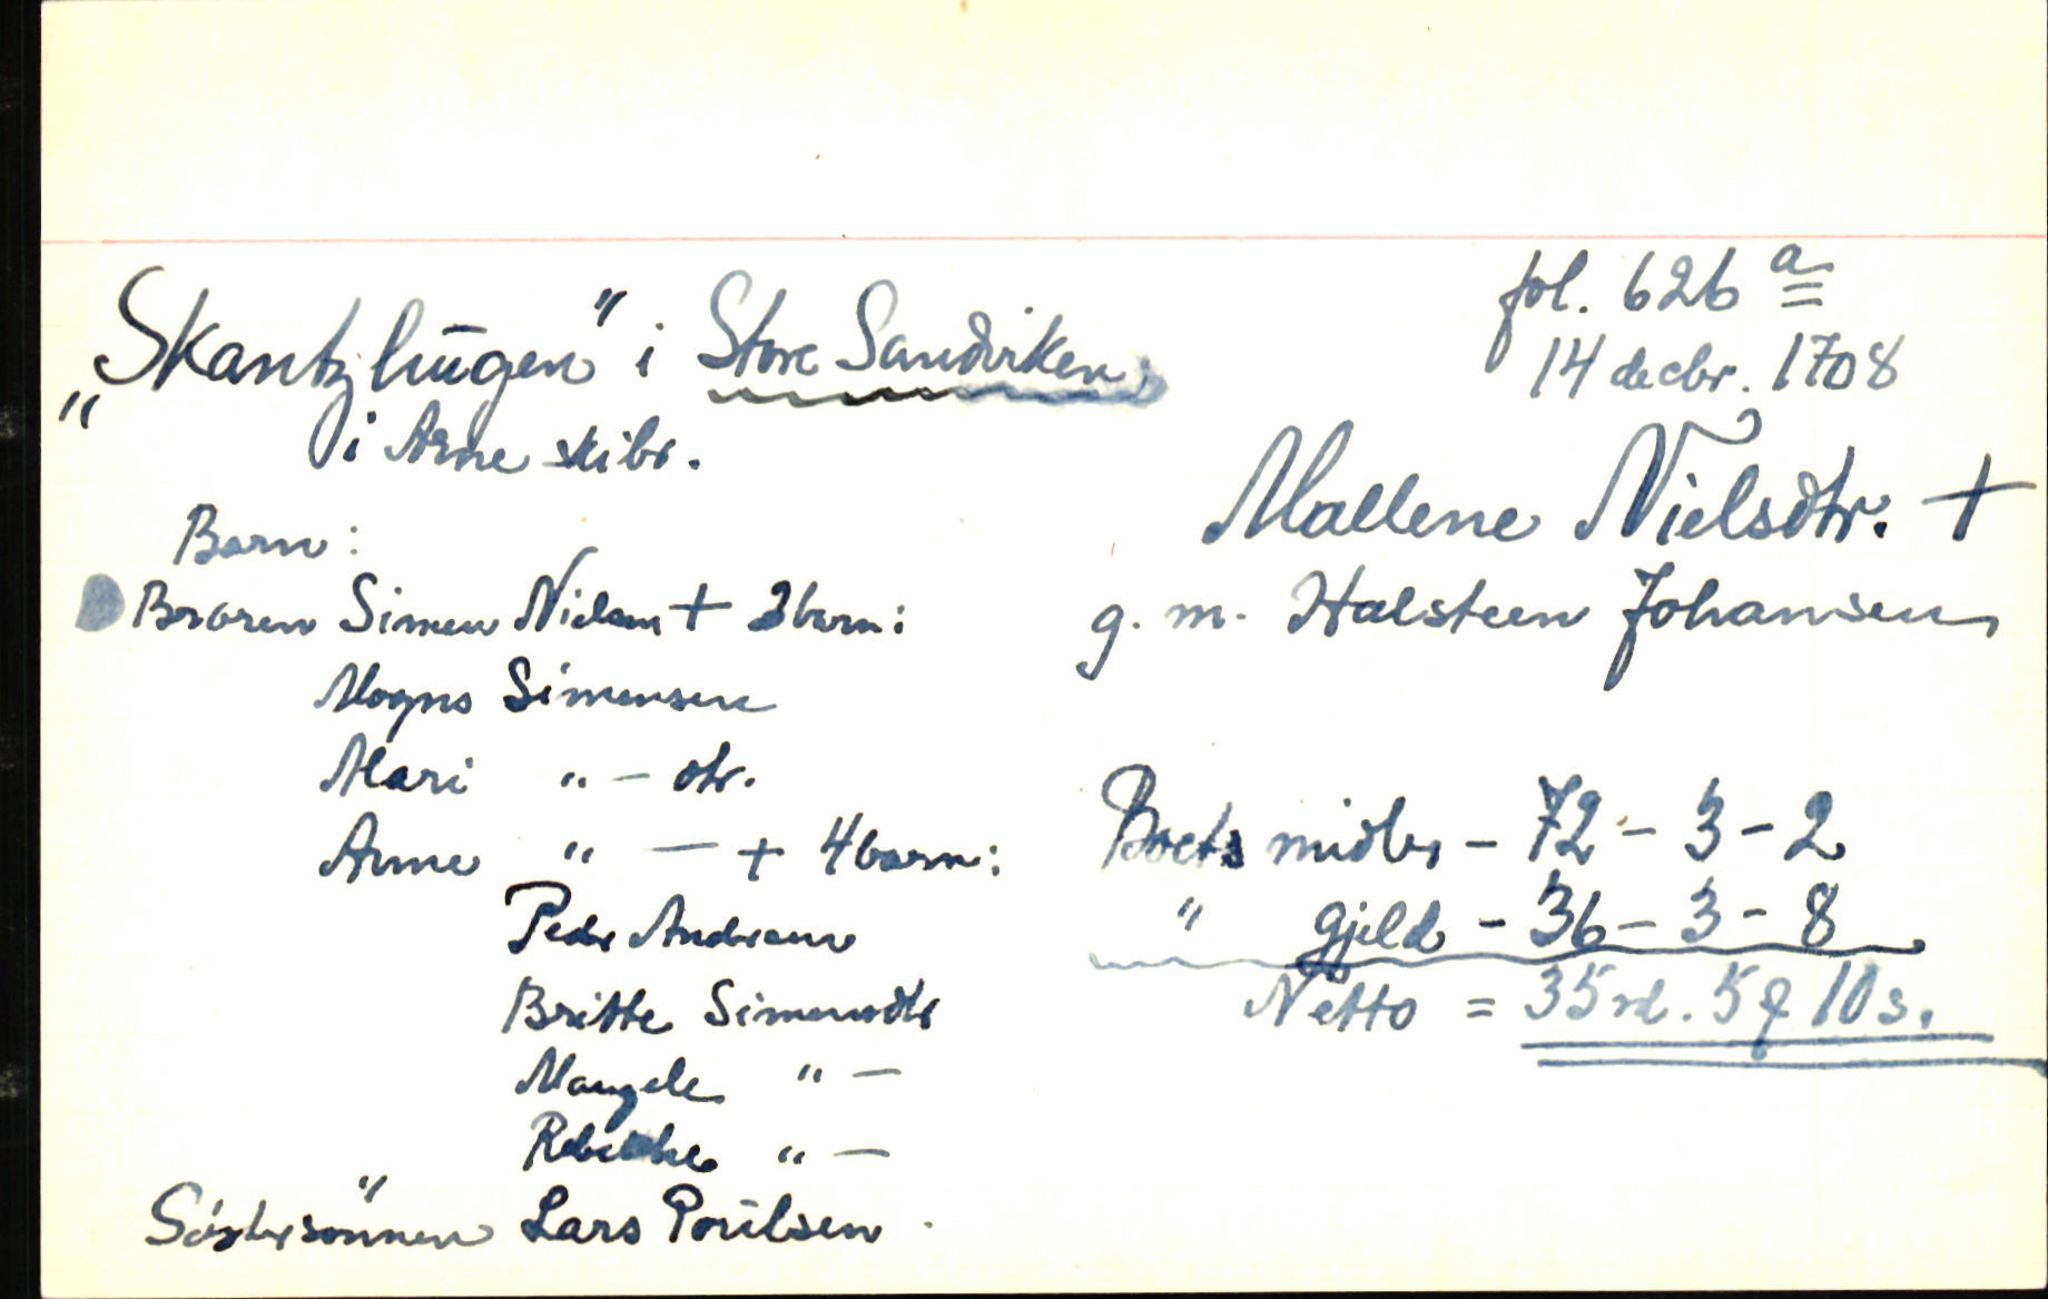 fol. 626 a
14 decbr. 1708
„Skantzhūgen" i Store Sandviken
i Arne skibr.
Mallene Nielsdtr. +
g. m. Halsteen Johansen
Barn:
Broren Simen Nielsen + 3 barn:
Mogns Simensen
Mari " — dtr.
Anne " — + 4 barn:
Peder Andersen
Britte Simensdtr
Mangele " —
" —
Søstersønnen Lars Poŭlsen
Boets midler - 72 - 3 - 2
" gjeld - 36 - 3 - 8
Netto = 35 rd. 5 ƒ 10 s.